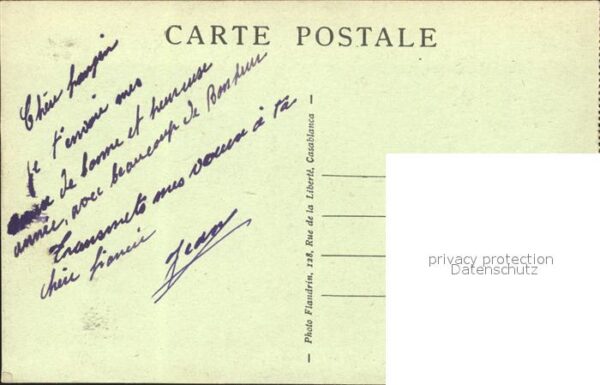 CARTE POSTALE
Chère
je t'envoie mes
de bonne et heureuse
année, avec beaucoup de Bonheur
Transmets mes voeux à ta
chère fiancée
Jean
— Photo Flandrin, 128, Rue de la Liberté, Casablanca —
privacy protection
Datenschutz